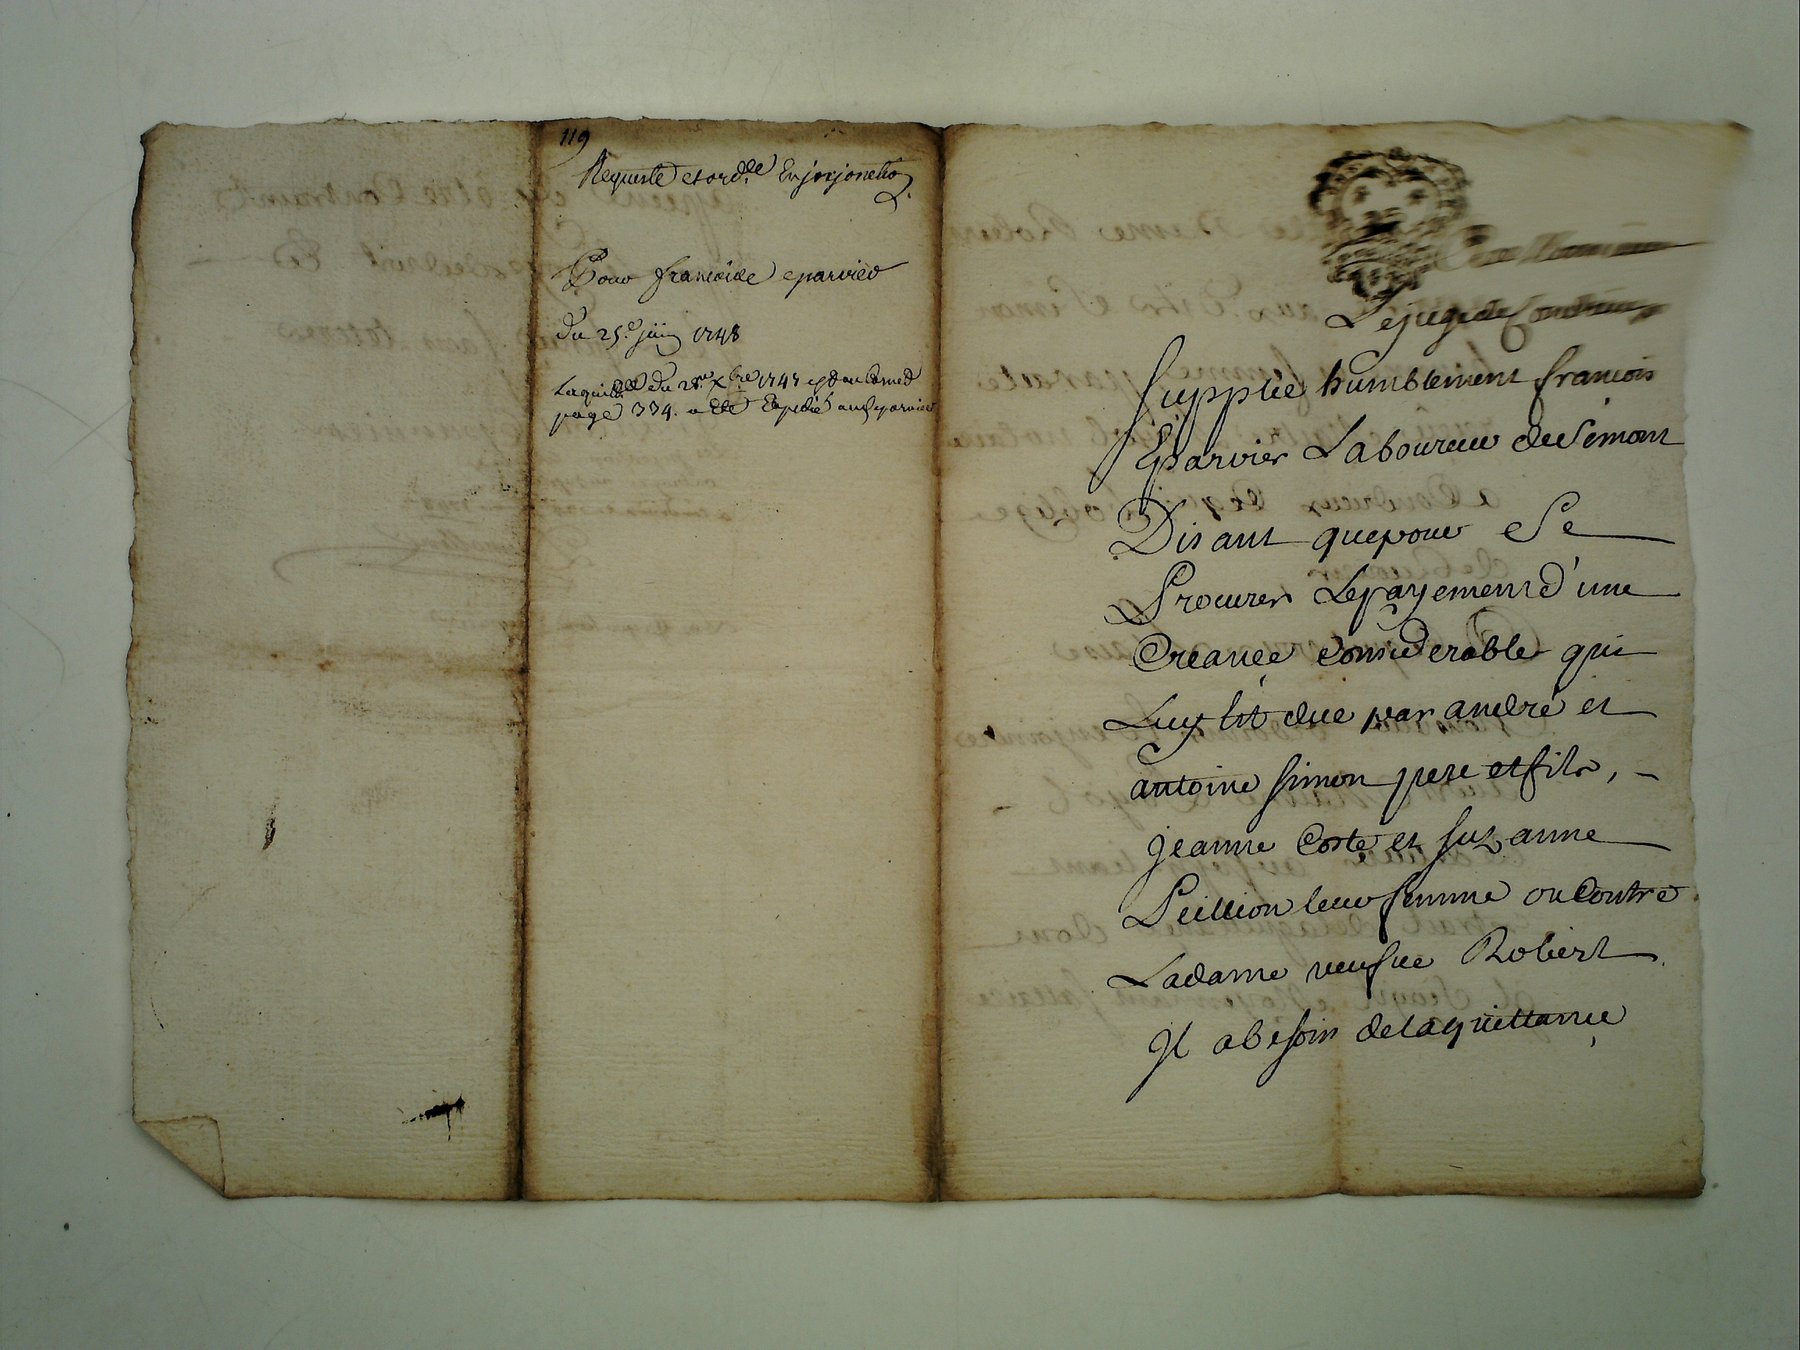 119
Requeste et ord.lle Enjonction
Pour francoise eparvier
du 25.e juin 1748
Laquitt.ce du 28.me xbre 1747 est au Carned
page 334. a Eté Expedié aud eparvier
Le juge de Condrieu
Supplie humblement francois
Eparvier Laboureur de Simont
Disant que pour Se
Procurer Le payement d'une
Creance Considerable qui
Luy Est due par andré et
antoine Simon pere et fils, -
Jeanne Coste et Suzanne
Peillion leur femme ou Contre
La dame veufve Robert
Il a besoin de la quittance